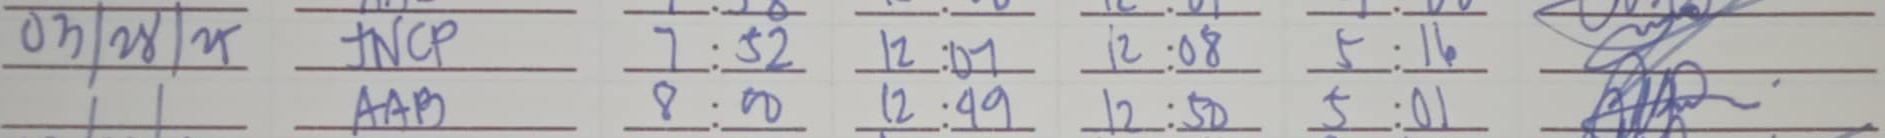 03/28/25 JNCP 7:52 12:07 12:08 5:16
/ / AAB 8:00 12:49 12:50 5:01